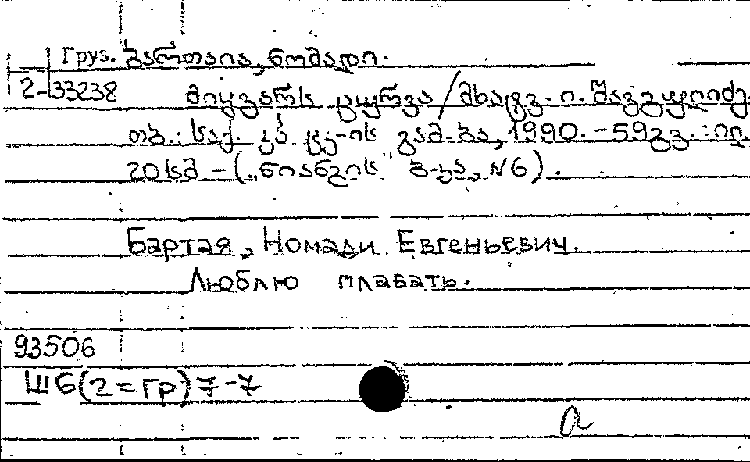 Груз. ბართაია, ნომადი.
2-33238 მიყვარს ცურვა / მხატვ. ი.
თბ.: საქ. კპ ცკ-ის გამ-ბა, 1990. - 59გვ.: ილ.
20სმ - („ნიანგის" ბ-კა, N6).
Бартая, Номади Евгеньевич.
Люблю плавать.
93506
Ш6(2=Гр)7-7
а